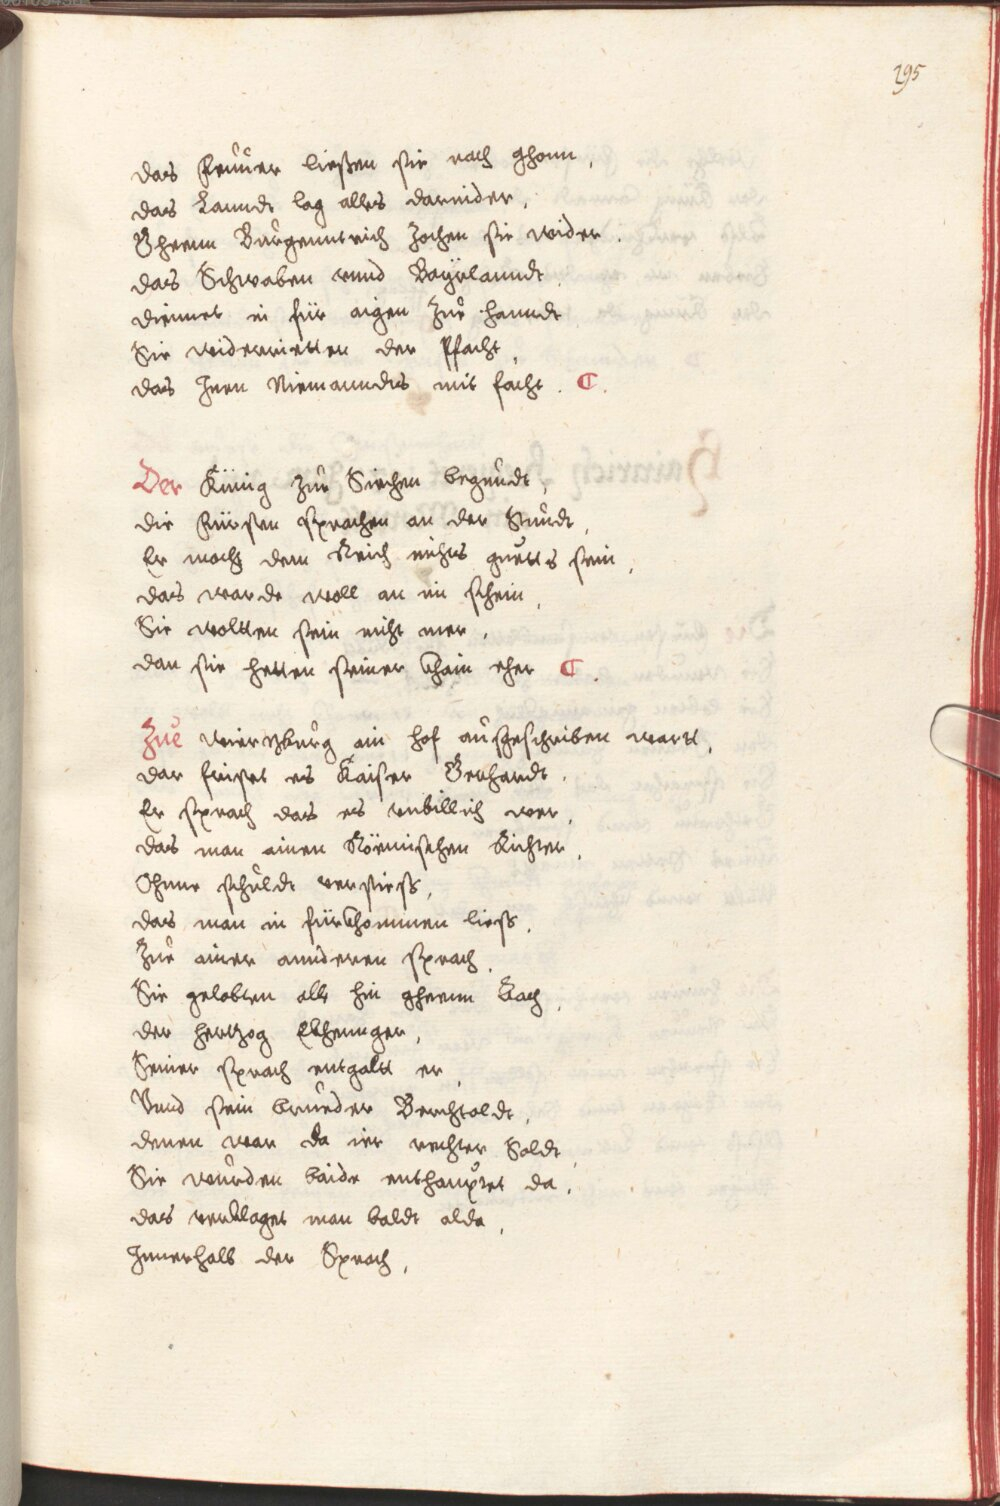 295
das Feuuer liessen sie nach ghonn,
das Lanndt lag alles darnider,
Gheenn Burgenntrich Zochen sie wider.
das Schwaben vnnd Bayrlanndt
diennet in für aigen Zue hanndt
Sie widerrietten der Pfacht,
das Inen Niemanndts mit facht. C.
Der Künig Zue Siechen begundt,
die Fürsten sprachen an der Stundt,
Er mocht dem Reich nichts guetts sein,
das warde woll an im schein,
Sie woltten sein nicht mer,
dan sie hetten seiner khain eher C.
Zue Wiertzburg ain hof ausgeschriben wartt,
dar fristet es Kaiser Gerhardt.
Er sprach das es vnbillich wer,
das man ainen Röemischen Richter,
Ohnne schuldt verstiess,
das man in fürkhommen liess,
Zue ainer annderen sprach.
Sie gelobten alle hin gheenn Lach,
der hertzog Ekhennger,
Seiner sprach entgaltt er,
Vnnd sein brueder Berchtoldt,
denen war da ier rechter Soldt,
Sie wurden baide enthauptet da,
das verklaget man baldt alda,
Innerhalb der Sprach,